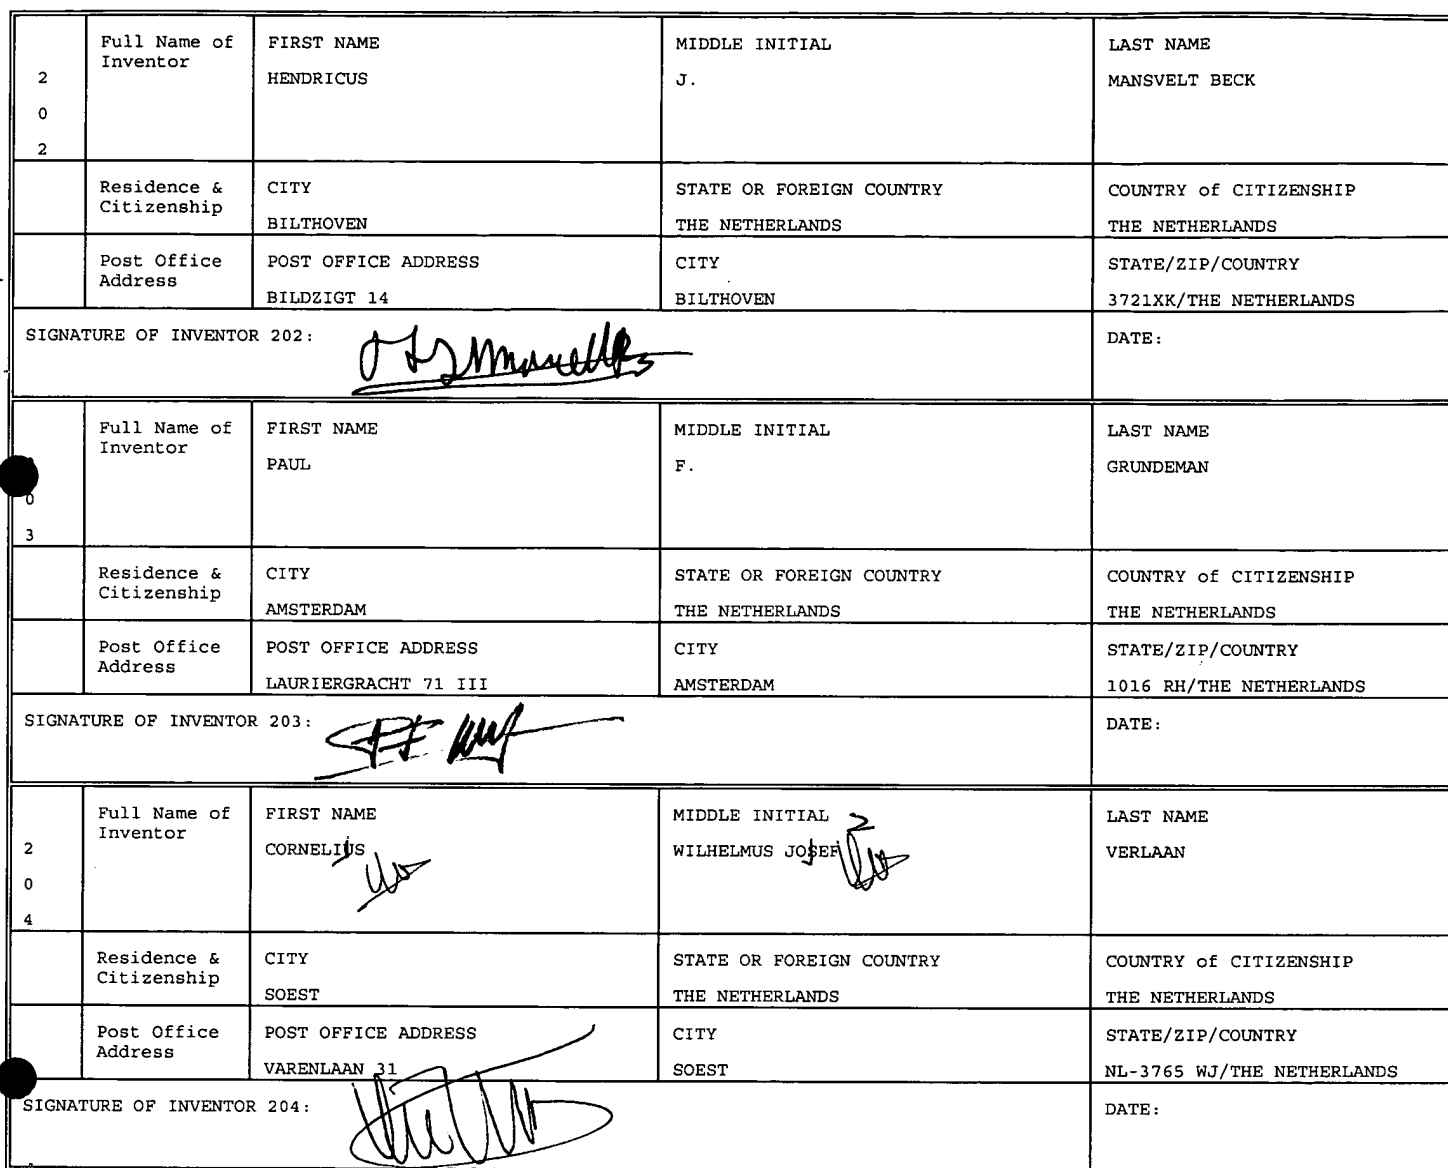 2
0
2
Full Name of Inventor
FIRST NAME
HENDRICUS
MIDDLE INITIAL
J.
LAST NAME
MANSVELT BECK
Residence & Citizenship
CITY
BILTHOVEN
STATE OR FOREIGN COUNTRY
THE NETHERLANDS
COUNTRY of CITIZENSHIP
THE NETHERLANDS
Post Office Address
POST OFFICE ADDRESS
BILDZIGT 14
CITY
BILTHOVEN
STATE/ZIP/COUNTRY
3721XK/THE NETHERLANDS
SIGNATURE OF INVENTOR 202:
DATE:
0
3
Full Name of Inventor
FIRST NAME
PAUL
MIDDLE INITIAL
F.
LAST NAME
GRUNDEMAN
Residence & Citizenship
CITY
AMSTERDAM
STATE OR FOREIGN COUNTRY
THE NETHERLANDS
COUNTRY of CITIZENSHIP
THE NETHERLANDS
Post Office Address
POST OFFICE ADDRESS
LAURIERGRACHT 71 III
CITY
AMSTERDAM
STATE/ZIP/COUNTRY
1016 RH/THE NETHERLANDS
SIGNATURE OF INVENTOR 203:
DATE:
2
0
4
Full Name of Inventor
FIRST NAME
CORNELIUS
MIDDLE INITIAL
WILHELMUS JOSEF
LAST NAME
VERLAAN
Residence & Citizenship
CITY
SOEST
STATE OR FOREIGN COUNTRY
THE NETHERLANDS
COUNTRY of CITIZENSHIP
THE NETHERLANDS
Post Office Address
POST OFFICE ADDRESS
VARENLAAN 31
CITY
SOEST
STATE/ZIP/COUNTRY
NL-3765 WJ/THE NETHERLANDS
SIGNATURE OF INVENTOR 204:
DATE: